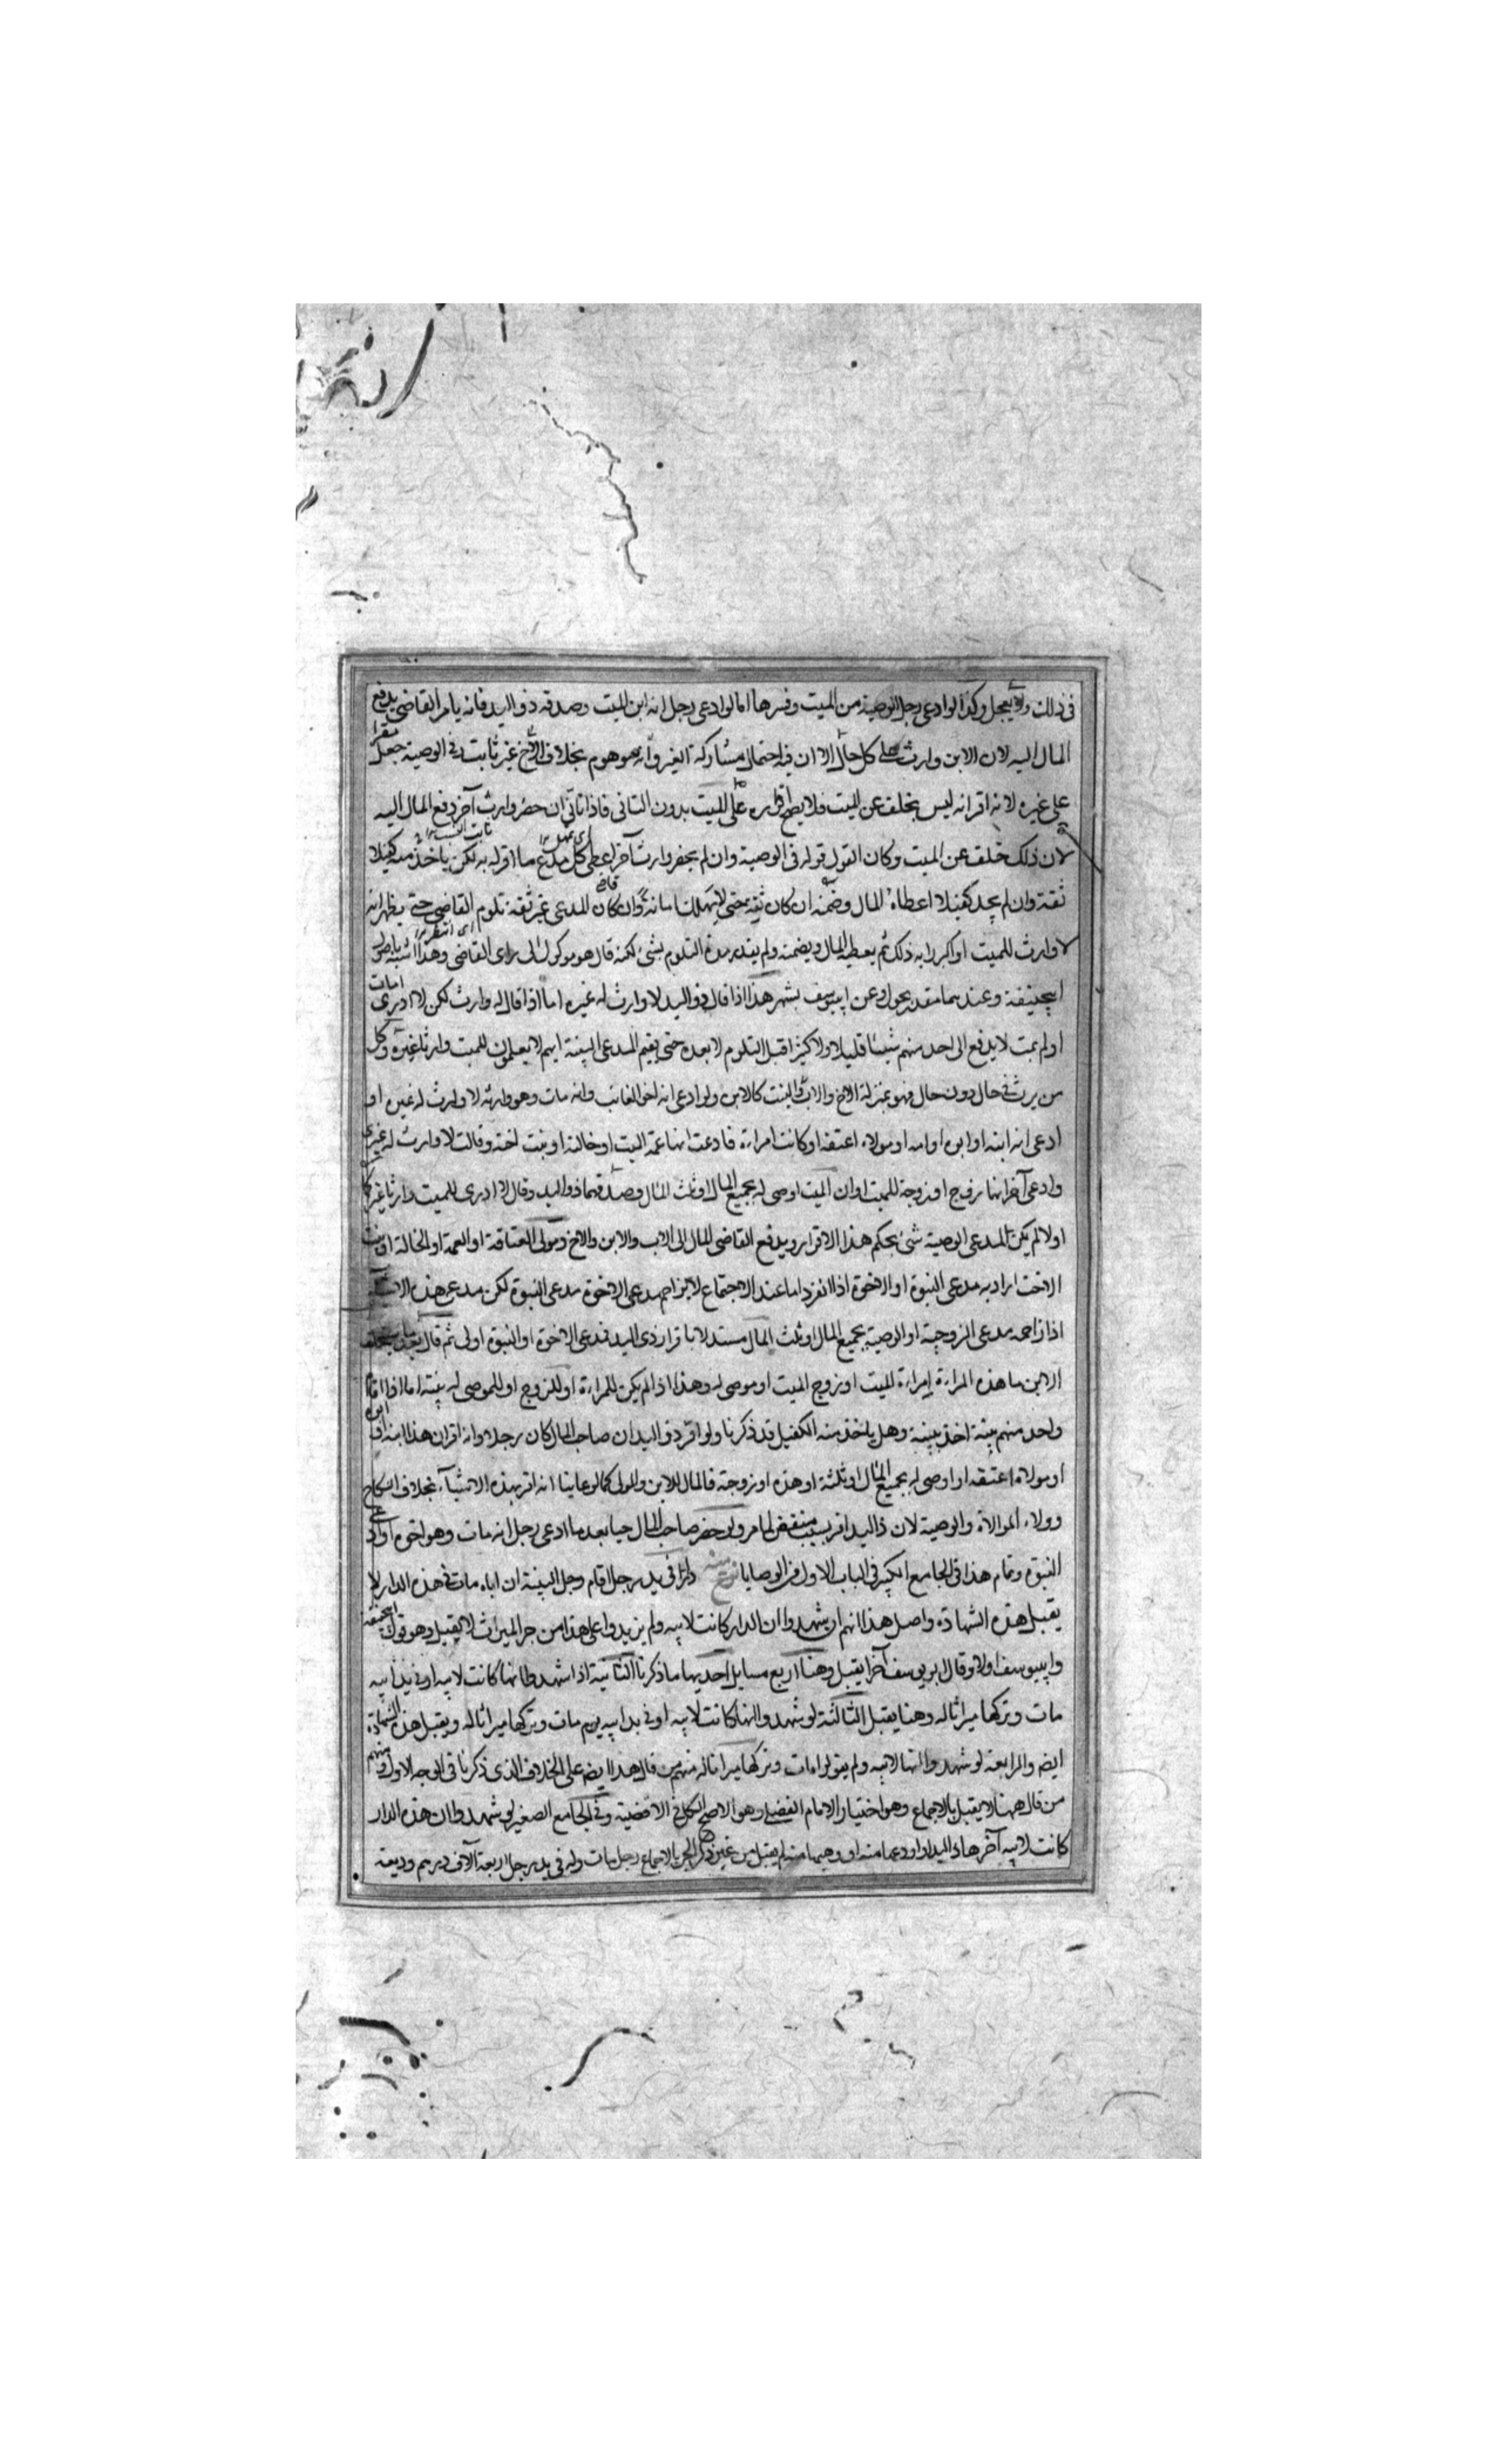 في ذلك ولا يعجل وكذا لو ادعى رجل الوصية من الميت وفسرها اما لو ادعى رجل انه ابن الميت وصدقه ذو اليد فانه يامر القاضي بدفع
المال اليه لان الابن وارث على كل حال الا ان فيه احتمال مشاركة الغير وانه موهوم بخلاف الاخ غير ثابت وفي الوصية جعل مقرا
على غيره لانه اقر انه ليس بخلف عن الميت فلا يصح اقراره على الميت بدون الثاني فاذا تاني ان حضر وارث آخر دفع المال اليه
لان ذلك خلف عن الميت وكان القول قوله في الوصية وان لم يحضر وارث آخر اعطى كل مدع ما اقر له به لكن ياخذ منه كفيلا
ثقة وان لم يجد كفيلا اعطاه المال وضمنه ان كان ثقة حتى لا يهلك امانة وان كان المدعي غير ثقة تلوم القاضي حتى يظهر انه
لا وارث للميت او اكبر رايه ذلك ثم يعطيه المال ويضمنه ولم يقدر مدة التلوم بشئ لكنه قال هو موكول الى راى القاضي وهذا اشبه باصل
ابيحنيفة وعندهما مقدر بحول وعن ابيوسف بشهر هذا اذا قال ذو اليد لا وارث له غيره اما اذا قال له وارث لكن لا ادرى امات
او لم يمت لا يدفع الى احد منهم شيئا قليلا ولا كثيرا قبل التلوم لا بعده حتى يقيم المدعي البينة انهم لا يعلمون للميت وارثا غيره وكل
من يرث في حال دون حال فهو بمنزلة الاخ والاب والبنت كالابن ولو ادعى انه اخو الغائب وانه مات وهو وارثه لا وارث له غيره او
ادعى انه ابنه او ابوه او امه او مولاه اعتقه او كانت امراة فادعت انها عمة الميت او خالته او بنت اخته وقالت لا وارث له غيري
وادعى آخر انها زوج او زوجة للميت او ان الميت اوصى له بجميع المال او ثلث المال وصدقهما ذو اليد وقال لا ادرى للميت وارثا غيركما
او لا لم يكن لمدعي الوصية شئ بحكم هذا الاقرار ويدفع القاضي المال الى الاب والابن والاخ ومولى العتاقة او العمة او الخالة او بنت
الاخت اراد به مدعي البنوة او الاخوة اذا انفرد اما عند الاجتماع لا يزاحم مدعي الاخوة مدعي البنوة لكن مدعي هذه
اذا زاحمه مدعي الزوجية او الوصية بجميع المال او ثلث المال مستدلا باقرار ذي اليد فمدعي الاخوة او البنوة اولى ثم قال
الابن ما هذه المراة امراة الميت او زوج الميت او موصى له وهذا اذا لم يكن للمراة او للزوج او للموصى له بينة اما اذا اقام
واحد منهم بينة اخذ ببينة وهل ياخذ منه الكفيل قد ذكرنا ولو اقر ذو اليد ان صاحب المال كان رجلا وانه اقر ان هذا ابنه او ابوه
او مولاه اعتقه او اوصى له بجميع المال او ثلثه او هذه او زوجته فالمال للابن والمولى كما لو عاينا انه اقر بهذه الاشيآء بخلاف النكاح
وولاء الموالاة والوصية لان ذا اليد اقر بسبب منتقض لما مر ولو حضر صاحب المال حيا بعد ما ادعى رجل انه مات وهو اخوه او ادعى
البنوة وتمام هذا في الجامع الكبير في الباب الاول من الوصايا دار في يد رجل اقام رجل البينة ان اباه مات في هذه الدار لا
يقبل هذه الشهادة واصل هذا انهم ان شهدوا ان الدار كانت لابيه ولم يزيدوا على هذا من جر الميراث لا يقبل وهو قول ابيحنيفة
وابيوسف اولا وقال ابو يوسف آخرا يقبل وهنا اربع مسايل احديها ما ذكرنا الثانية اذا شهدوا انها كانت لابيه او في يد ابيه
مات وتركها ميراثا له وهنا يقبل الثالثة لو شهدوا انها كانت لابيه او في يد ابيه يوم مات وتركها ميراثا له ويقبل هذه الشهادة
ايضا والرابعة لو شهدوا انها لابيه ولم يقولوا مات وتركها ميراثا له منهم من قال هذا ايضا على الخلاف الذى ذكرنا في الوجه الاول ومنهم
من قال ههنا لا يقبل بالاجماع وهو اختيار الامام الفضلي وهو الاصح الكل في الاقضية وفي الجامع الصغير لو شهدوا ان هذه الدار
كانت لابيه آخرها ذا اليد او اودعها منه او وهبها منه لم يقبل من غير ذكر الجر بالاجماع رجل مات وله في يد رجل اربعة آلاف درهم وديعة